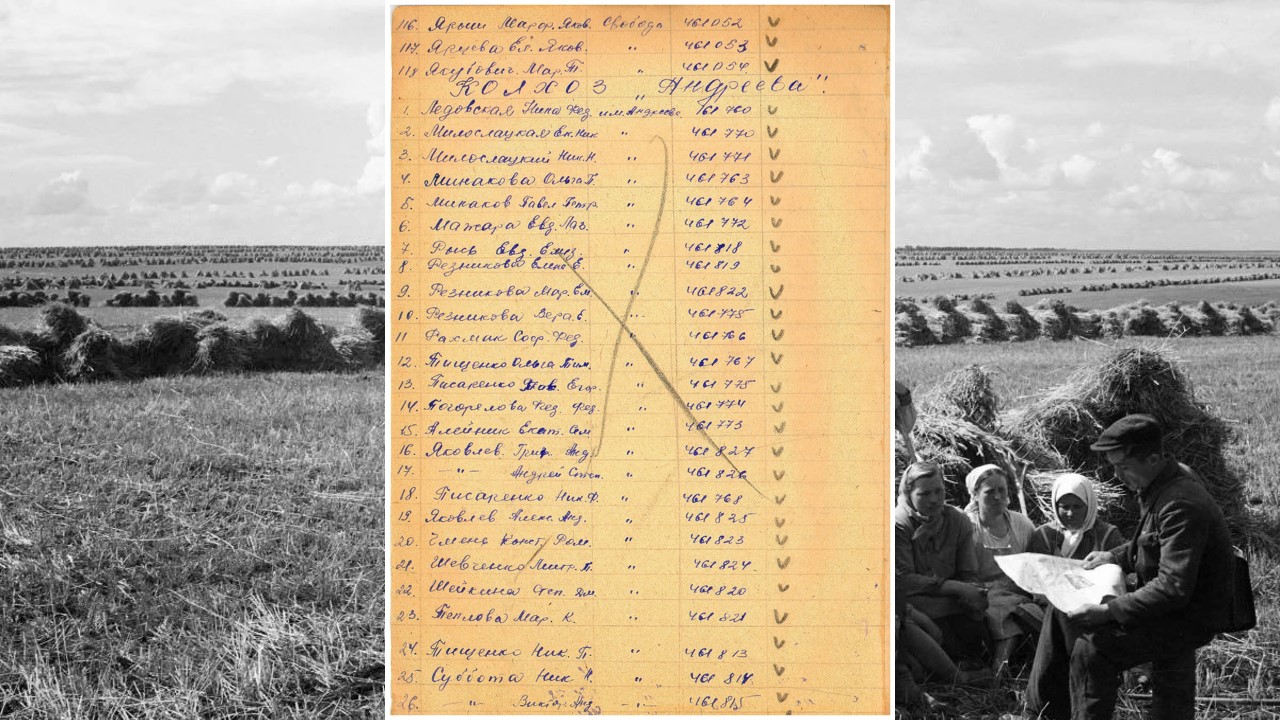 116. Ярыш Марф. Яков. Свобода 461052 ✓
117. Ярцева Ев. Яков. " 461053 ✓
118 Якубович. Мар. Т. " 461054. ✓
Колхоз „Андреева".
1. Ледовская Нина Фед. им. Андреева 461760 ✓
2. Милослацкая Ек. Ник " 461770 ✓
3. Милослацкий Ник. Н. " 461771 ✓
4. Минакова Ольга П. " 461763 ✓
5. Минаков Павел Петр. " 461764 ✓
6. Мажара Евд. " 461772 ✓
7. Рысь Евд. " 461818 ✓
8. Резникова Елена Е. " 461819 ✓
9. Резникова Мар. Ем. " 461822 ✓
10. Резникова Вера Е. " 461775 ✓
11 Рахмак Соф. Фед. " 461766 ✓
12. Тищенко Ольга Тим. " 461767 ✓
13. Писаренко Егор. " 461775 ✓
14. Погорелова Фед. Фед. " 461774 ✓
15. Алейник Екат. Сем. " 461773 ✓
16. Яковлев. Григ. Анд. " 461827 ✓
17. —"— Андрей Степ. " 461826 ✓
18. Писаренко Ник. Ф. " 461768 ✓
19. Яковлев Алекс. Анд. " 461825 ✓
20. Конст. Ром. " 461823 ✓
21. Шевченко Дмитр. П. " 461824. ✓
22. Шейкина Степ. Дм. " 461820 ✓
23. Теплова Мар. К. " 461821 ✓
24. Тищенко Ник. П. " 461813 ✓
25. Суббота Ник. " 461814 ✓
26. —"— Виктор Анд. —"— 461815 ✓